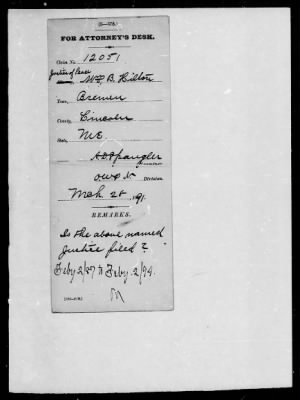 FOR ATTORNEY'S DESK.
Claim No. 12051
Justice of Peace
Wm. B. Hilton
Town, Bremen
County, Lincoln
State, Me
A D Spangler
O.W. & N. Division.
Mch 28, 91.
REMARKS.
Is the above named
Justice filed?
Feby 2/87 to Feby. 2/94.
M